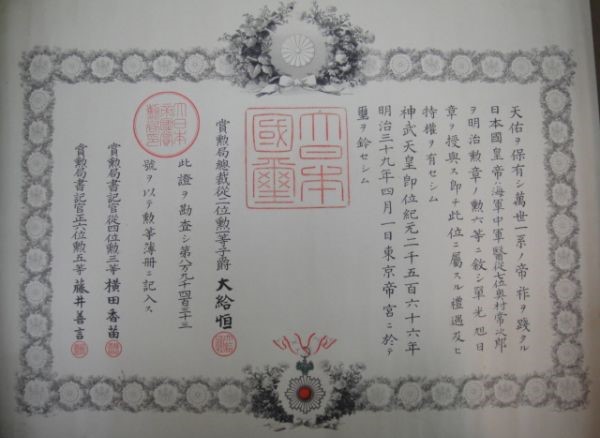 天佑ヲ保有シ萬世一系ノ帝祚ヲ踐タル
日本國皇帝ハ海軍中軍醫從七位奥村常次郎
ヲ明治勲章ノ勲六等ニ敘シ單光旭日
章ヲ授與ス即チ此位ニ屬スル禮遇及ヒ
特權ヲ有セシム
神武天皇即位紀元二千五百六十六年
明治三十九年四月一日東京帝宮ニ於テ
璽ヲ鈐セシム
大日本國璽
賞勲局總裁從二位勲一等子爵 大給恒
此證ヲ勘査シ第八万九千四百三十三
號ヲ以テ勲等簿册ニ記入ス
大日本帝國賞勲局印
賞勲局書記官從四位勲三等 横田香苗
賞勲局書記官正六位勲五等 藤井善言